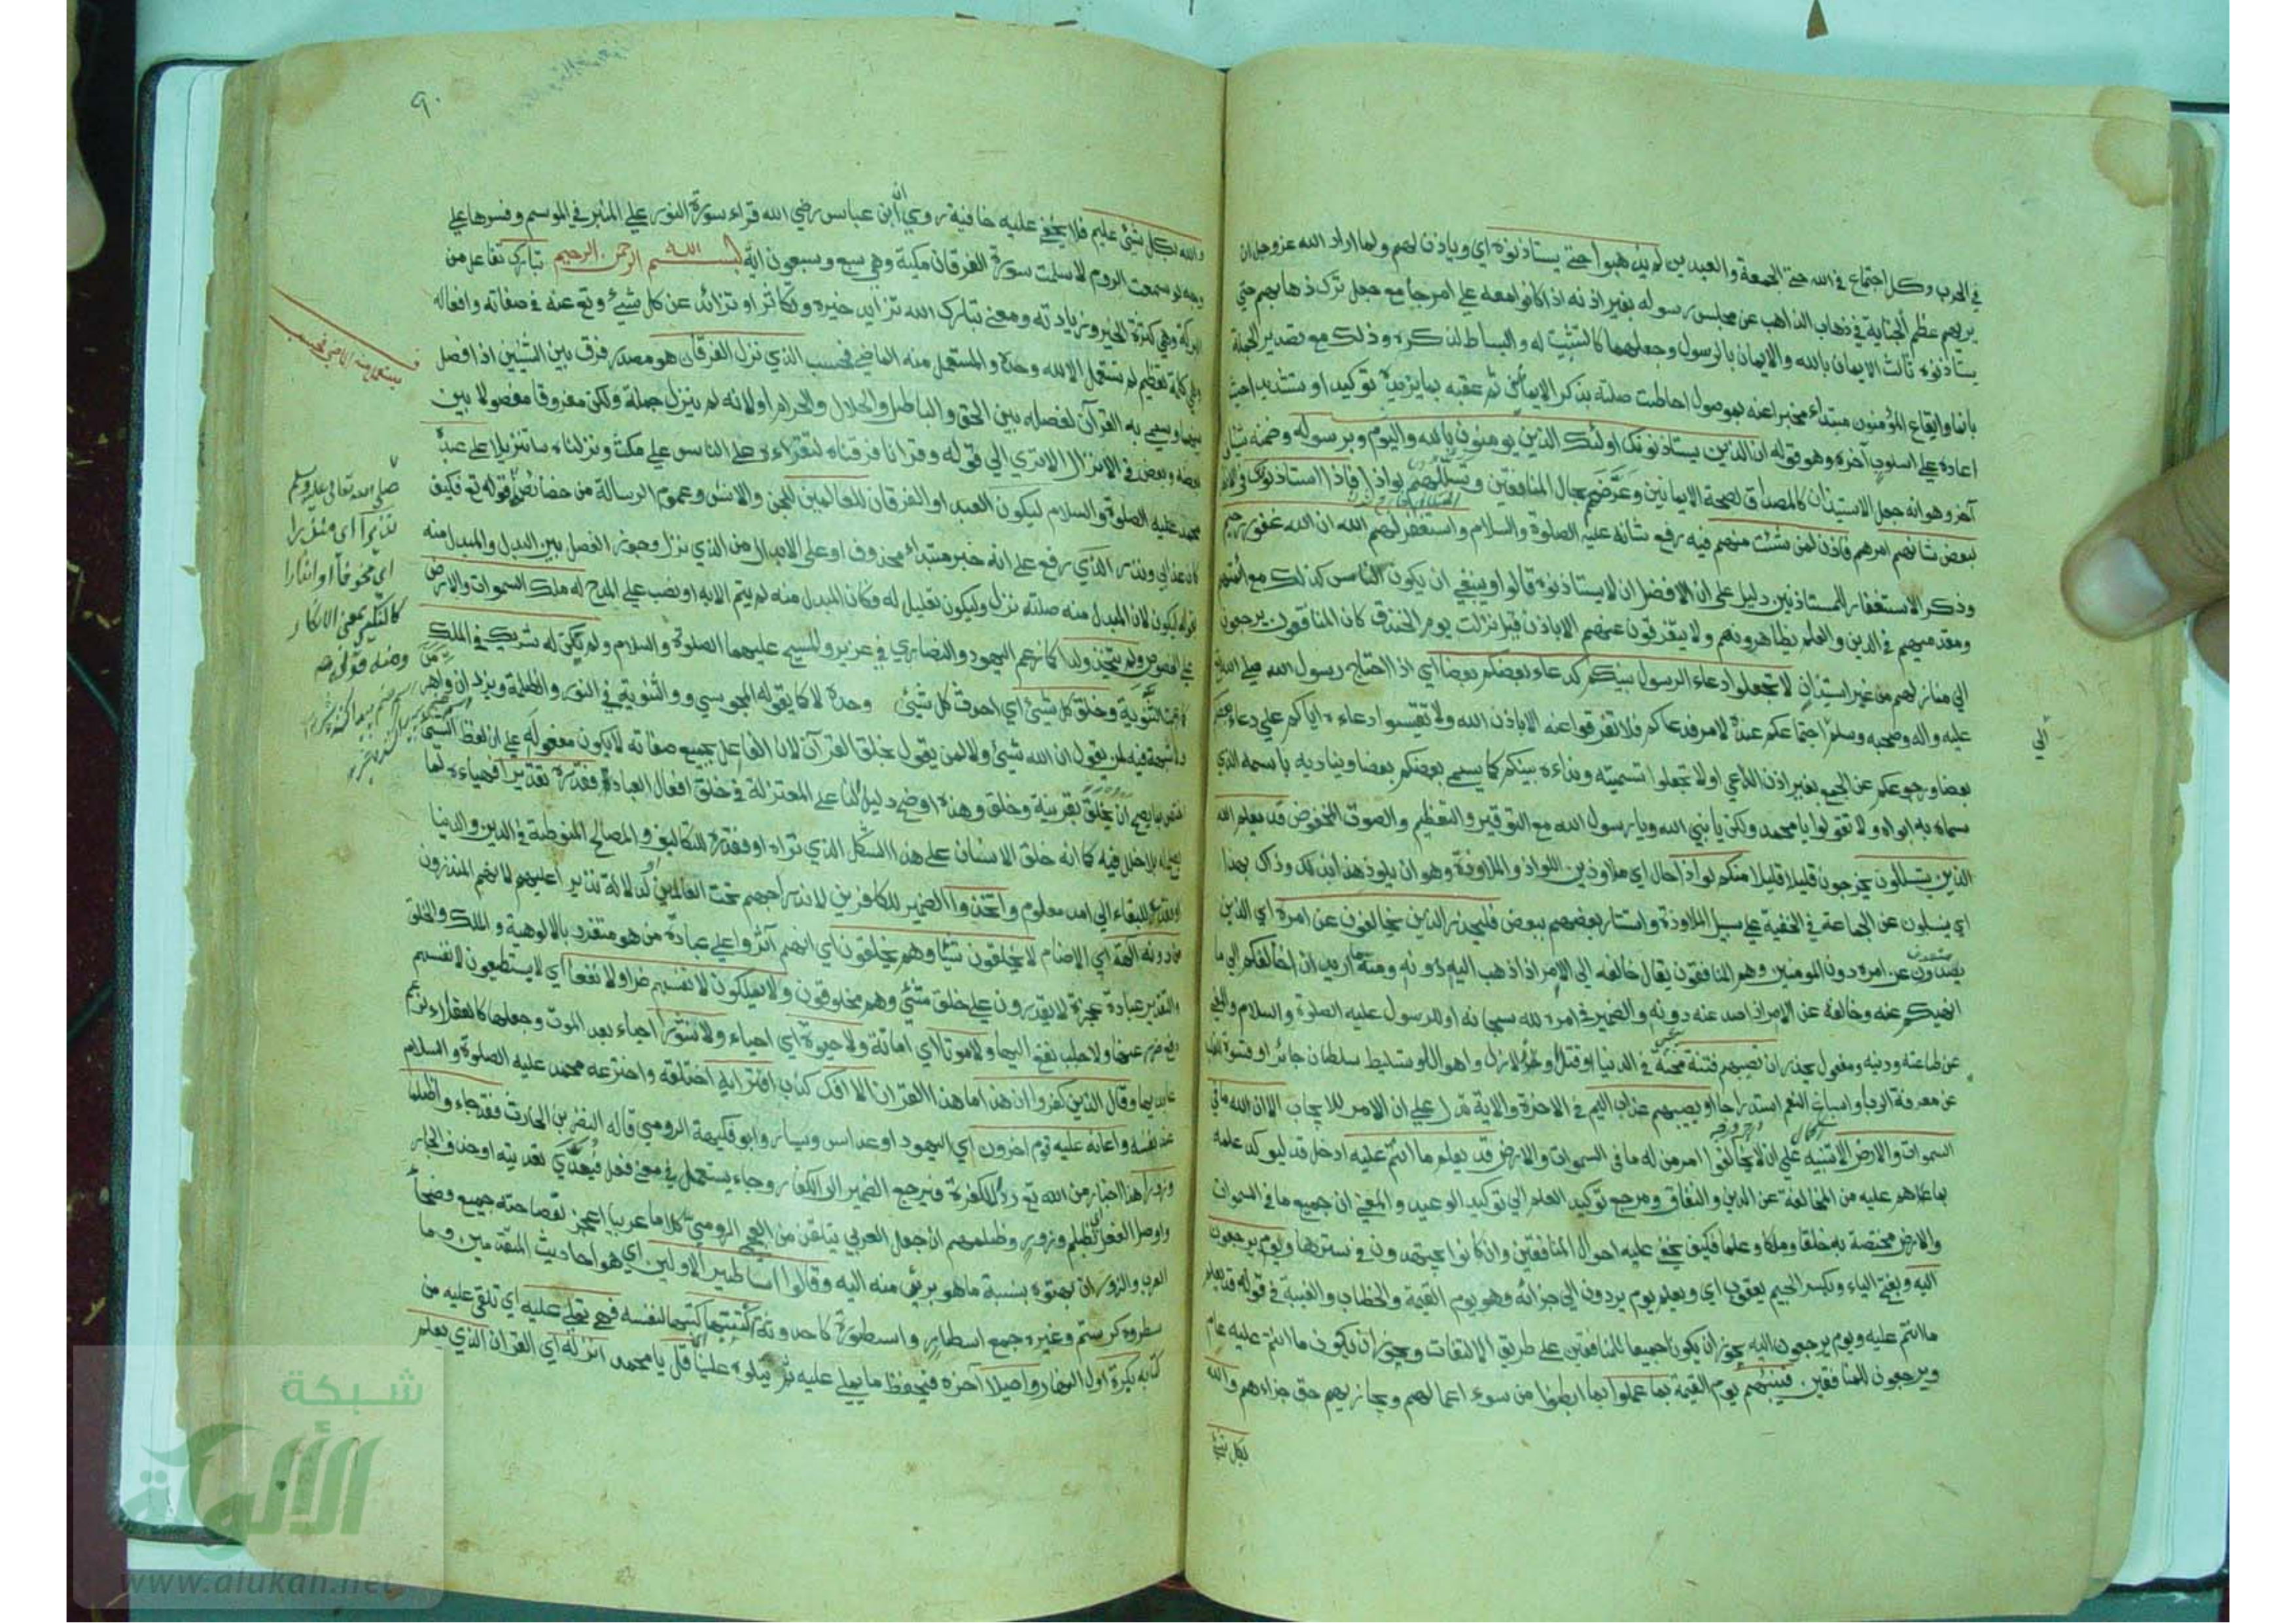 في الحرب وكل اجتماع في الله حتى الجمعة والعيدين لم يذهبوا حتى يستاذنوه اي وياذن لهم ولما اراد الله عزوجل ان
يريهم عظم الجناية في ذهاب الذاهب عن مجلس رسوله بغير اذنه اذا كانوا معه على امر جامع جعل ترك ذهابهم حتى
يستاذنوه ثالث الايمان بالله والايمان بالرسول وجعلهما كالتثبيت له والبساط لذكره وذلك مع تصدير الجملة
بانما وايقاع المؤمنون مبتداء مخبرا عنه بموصول احاطت صلته بذكر الايمانين ثم عقبه بما يزيده توكيدا وتشديدا حيث
اعاده على اسلوب آخر وهو قوله ان الذين يستاذنونك اولئك الذين يومنون بالله واليوم وبرسوله وضمنه شيئا
آخر وهو انه جعل الاستيذان كالمصداق لصحة الايمانين وعرض بحال المنافقين وتسللهم لواذا فاذا استاذنوك
لبعض شانهم امرهم فاذن لمن شئت منهم فيه رفع شانه عليه الصلوة والسلام واستغفر لهم الله ان الله غفور رحيم
وذكر الاستغفار للمستاذنين دليل على ان الافضل ان لا يستاذنوه قالوا وينبغي ان يكون الناس كذلك مع ائمتهم
ومقدميهم في الدين والعلم يظاهرونهم ولا يتفرقون عنهم الا باذن قيل نزلت يوم الخندق كان المنافقون يرجعون
الي منازلهم من غير استيذان لا تجعلوا دعاء الرسول بينكم كدعاء بعضكم بعضا اي اذا احتاج رسول الله صلى الله
عليه واله وصحبه وسلم الي اجتماعكم عنده لامر فدعاكم فلا تفرقوا عنه الا باذن الله ولا تقيسوا دعاءه اياكم على دعاء بعضكم
بعضا ورجوعكم عن الجمع بغير اذن الداعي اولا تجعلوا تسميته ونداءه بينكم كما يسمى بعضكم بعضا ويناديه باسمه الذي
سماه به ابواه ولا تقولوا يا محمد ولكن يا نبي الله ويا رسول الله مع التوقير والتعظيم والصوت المخفوض قد يعلم الله
الذين يتسللون يخرجون قليلا قليلا منكم لواذا حال اي ملاوذين اللواذ والملاوذة وهو ان يلوذ هذا بذلك وذاك بهذا
اي ينسلون عن الجماعة في الخفية على سبيل الملاوذة واستتار بعضهم ببعض فليحذر الذين يخالفون عن امره اي الذين
يصدون عن امره دون المومنين وهم المنافقون يقال خالفه الى الامر اذا ذهب اليه دونه ومنه ما اريد ان اخالفكم الى ما
انهيكم عنه وخالفه عن الامر اذا صد عنه دونه والضمير في امره لله سبحانه او للرسول عليه الصلوة والسلام والمعنى
عن طاعته ودينه ومفعول يحذر ان تصيبهم فتنة محنة في الدنيا او قتل او زلازل واهوال او تسليط سلطان جائر او قسوة القلب
عن معرفة الرب او اسباغ النعم استدراجا او يصيبهم عذاب اليم في الاخرة والاية تدل على ان الامر للايجاب الا ان لله ما في
السموات والارض الا تنبيه على ان لا يخالفوا امر من له ما في السموات والارض قد يعلم ما انتم عليه ادخل قد ليوكد علمه
بما هم عليه من المخالفة عن الدين والنفاق ومرجع توكيد العلم الي توكيد الوعيد والمعنى ان جميع ما في السموات
والارض مختصة به خلقا وملكا وعلما فكيف يخفى عليه احوال المنافقين وان كانوا يجتهدون في سترها ويوم يرجعون
اليه وبفتح الياء وبكسر الجيم يعقوب اي ويعلم يوم يردون الي جزائه وهو يوم القيمة والخطاب والغيبة في قوله قد يعلم
ما انتم عليه ويوم يرجعون اليه يجوز ان يكون جميعا للمنافقين على طريق الالتفات ويجوز ان يكون ما انتم عليه عام
ويرجعون للمنافقين فينبئهم يوم القيمة بما عملوا بما ابطنوا من سوء اعمالهم ويجازيهم حق جزاءهم والله
بكل شئ
الي
٩٠
والله بكل شئ عليم فلا يخفى عليه خافية روي ان ابن عباس رضي الله قراء سورة النور على المنبر في الموسم وفسرها على
وجه لو سمعت الروم لاسلمت سورة الفرقان مكية وهي سبع وسبعون اية بسم الله الرحمن الرحيم تبارك تفاعل من
البركة وهي كثرة الخير وزيادته ومعنى تبارك الله تزايد خيره وتكاثر او تزائد عن كل شيئ وتع عنه في صفاته وافعاله
وهي كلمة تعظيم لم تستعمل الا لله وحده والمستعمل منه الماضي فحسب الذي نزل الفرقان هو مصدر فرق بين الشيئين اذا فصل
بينهما وسمى به القرآن لفصله بين الحق والباطل والحلال والحرام اولانه لم ينزل جملة ولكن مفروقا مفصولا بين
بعضه وبعض في الانزال الا ترى الي قوله وقرانا فرقناه لتقراءه على الناس على مكث ونزلناه تنزيلا على عبده
محمد عليه الصلوة والسلام ليكون العبد او الفرقان للعالمين للجن والانس وعموم الرسالة من خصائصه قوله تع فكيف
كان عذابي ونذر الذي رفع على انه خبر مبتداء محذوف او على الابدال من الذي نزل وجوز الفصل بين البدل والمبدل منه
بقوله ليكون لان المبدل منه صلته نزل وليكون تعليل له فكان المبدل منه لم يتم الا به او نصب على المدح له ملك السموات والارض
على الخصوص ولم يتخذ ولدا كما زعم اليهود والنصارى في عزير والمسيح عليهما الصلوة والسلام ولم يكن له شريك في الملك
كما زعمت الثنوية وخلق كل شيئ اي احدث كل شيئ وحده لا كما يقوله المجوسي والثنوية في النور والظلمة ويزدان واهرمن
ولا شبهة فيه لمن يقول ان الله شيئ ولا لمن يقول بخلق القرآن لان الفاعل بجميع صفاته لا يكون مفعوله على ان لفظ الشئ
اختص بما يصح ان يخلق بقرينة وخلق وهذا اوضح دليل لنا على المعتزلة في خلق افعال العباد فقدره تقديرا فهياءه لما
يصلح له بلا خلل فيه كما انه خلق الانسان على هذا الشكل الذي تراه او فقدره للتكاليف والمصالح المنوطة في الدين والدنيا
او قدره للبقاء الي امد معلوم واتخذوا الضمير للكافرين لاندراجهم تحت العالمين او لدلالة نذيرا عليهم لانهم المنذرون
من دونه آلهة اي الاصنام لا يخلقون شيئا وهم يخلقون اي انهم آثروا على عبادة من هو متفرد بالالوهية والملك والخلق
والتقدير عبادة عجزة لا يقدرون على خلق شيئ وهم مخلوقون ولا يملكون لانفسهم ضرا ولا نفعا اي لا يستطيعون لانفسهم
دفع ضرر عنها ولا جلب نفع اليها ولا موتا اي اماتة ولا حيوة اي احياء ولا نشورا احياء بعد الموت وجعلها كالعقلاء لزعم
عابديها وقال الذين كفروا ان هذا ما هذا القران الا افك كذب افتراه اختلقه واخترعه محمد عليه الصلوة والسلام
عند نفسه واعانه عليه قوم اخرون اي اليهود او عداس ويسار وابو فكيهة الرومي قاله النضر بن الحارث فقد جاءو ظلما
وزورا هذا اخبار من الله تع رد للكفرة فيرجع الضمير الى الكفار وجاء يستعمل في معنى فعل فيعدى تعديته او حذف الجار
واوصل الفعل اي بظلم وزور وظلمهم ان جعل العربي يتلقن من العجمي الرومي كلاما عربيا اعجز بفصاحته جميع فصحاء
العرب والزور ان بهتوه بنسبة ما هو برئ منه اليه وقالوا اساطير الاولين اي هو احاديث المتقدمين وما
سطروه كرستم وغيره جمع اسطار واسطورة كاحدوثة اكتتبها كتبها لنفسه فهي تملى عليه اي تلقى عليه من
كتابه بكرة اول النهار واصيلا آخره فيحفظ ما يملى عليه ثم يتلوه علينا قل يا محمد انزله اي القران الذي يعلم
يستعمل منه الماضي فحسب
صلى الله تعالى عليه وسلم
نذيرا اي منذرا
اي مخوفا او انذارا
كالنكير بمعنى الانكار
ومنه قوله تع
شبكة
الألوكة
www.alukah.net